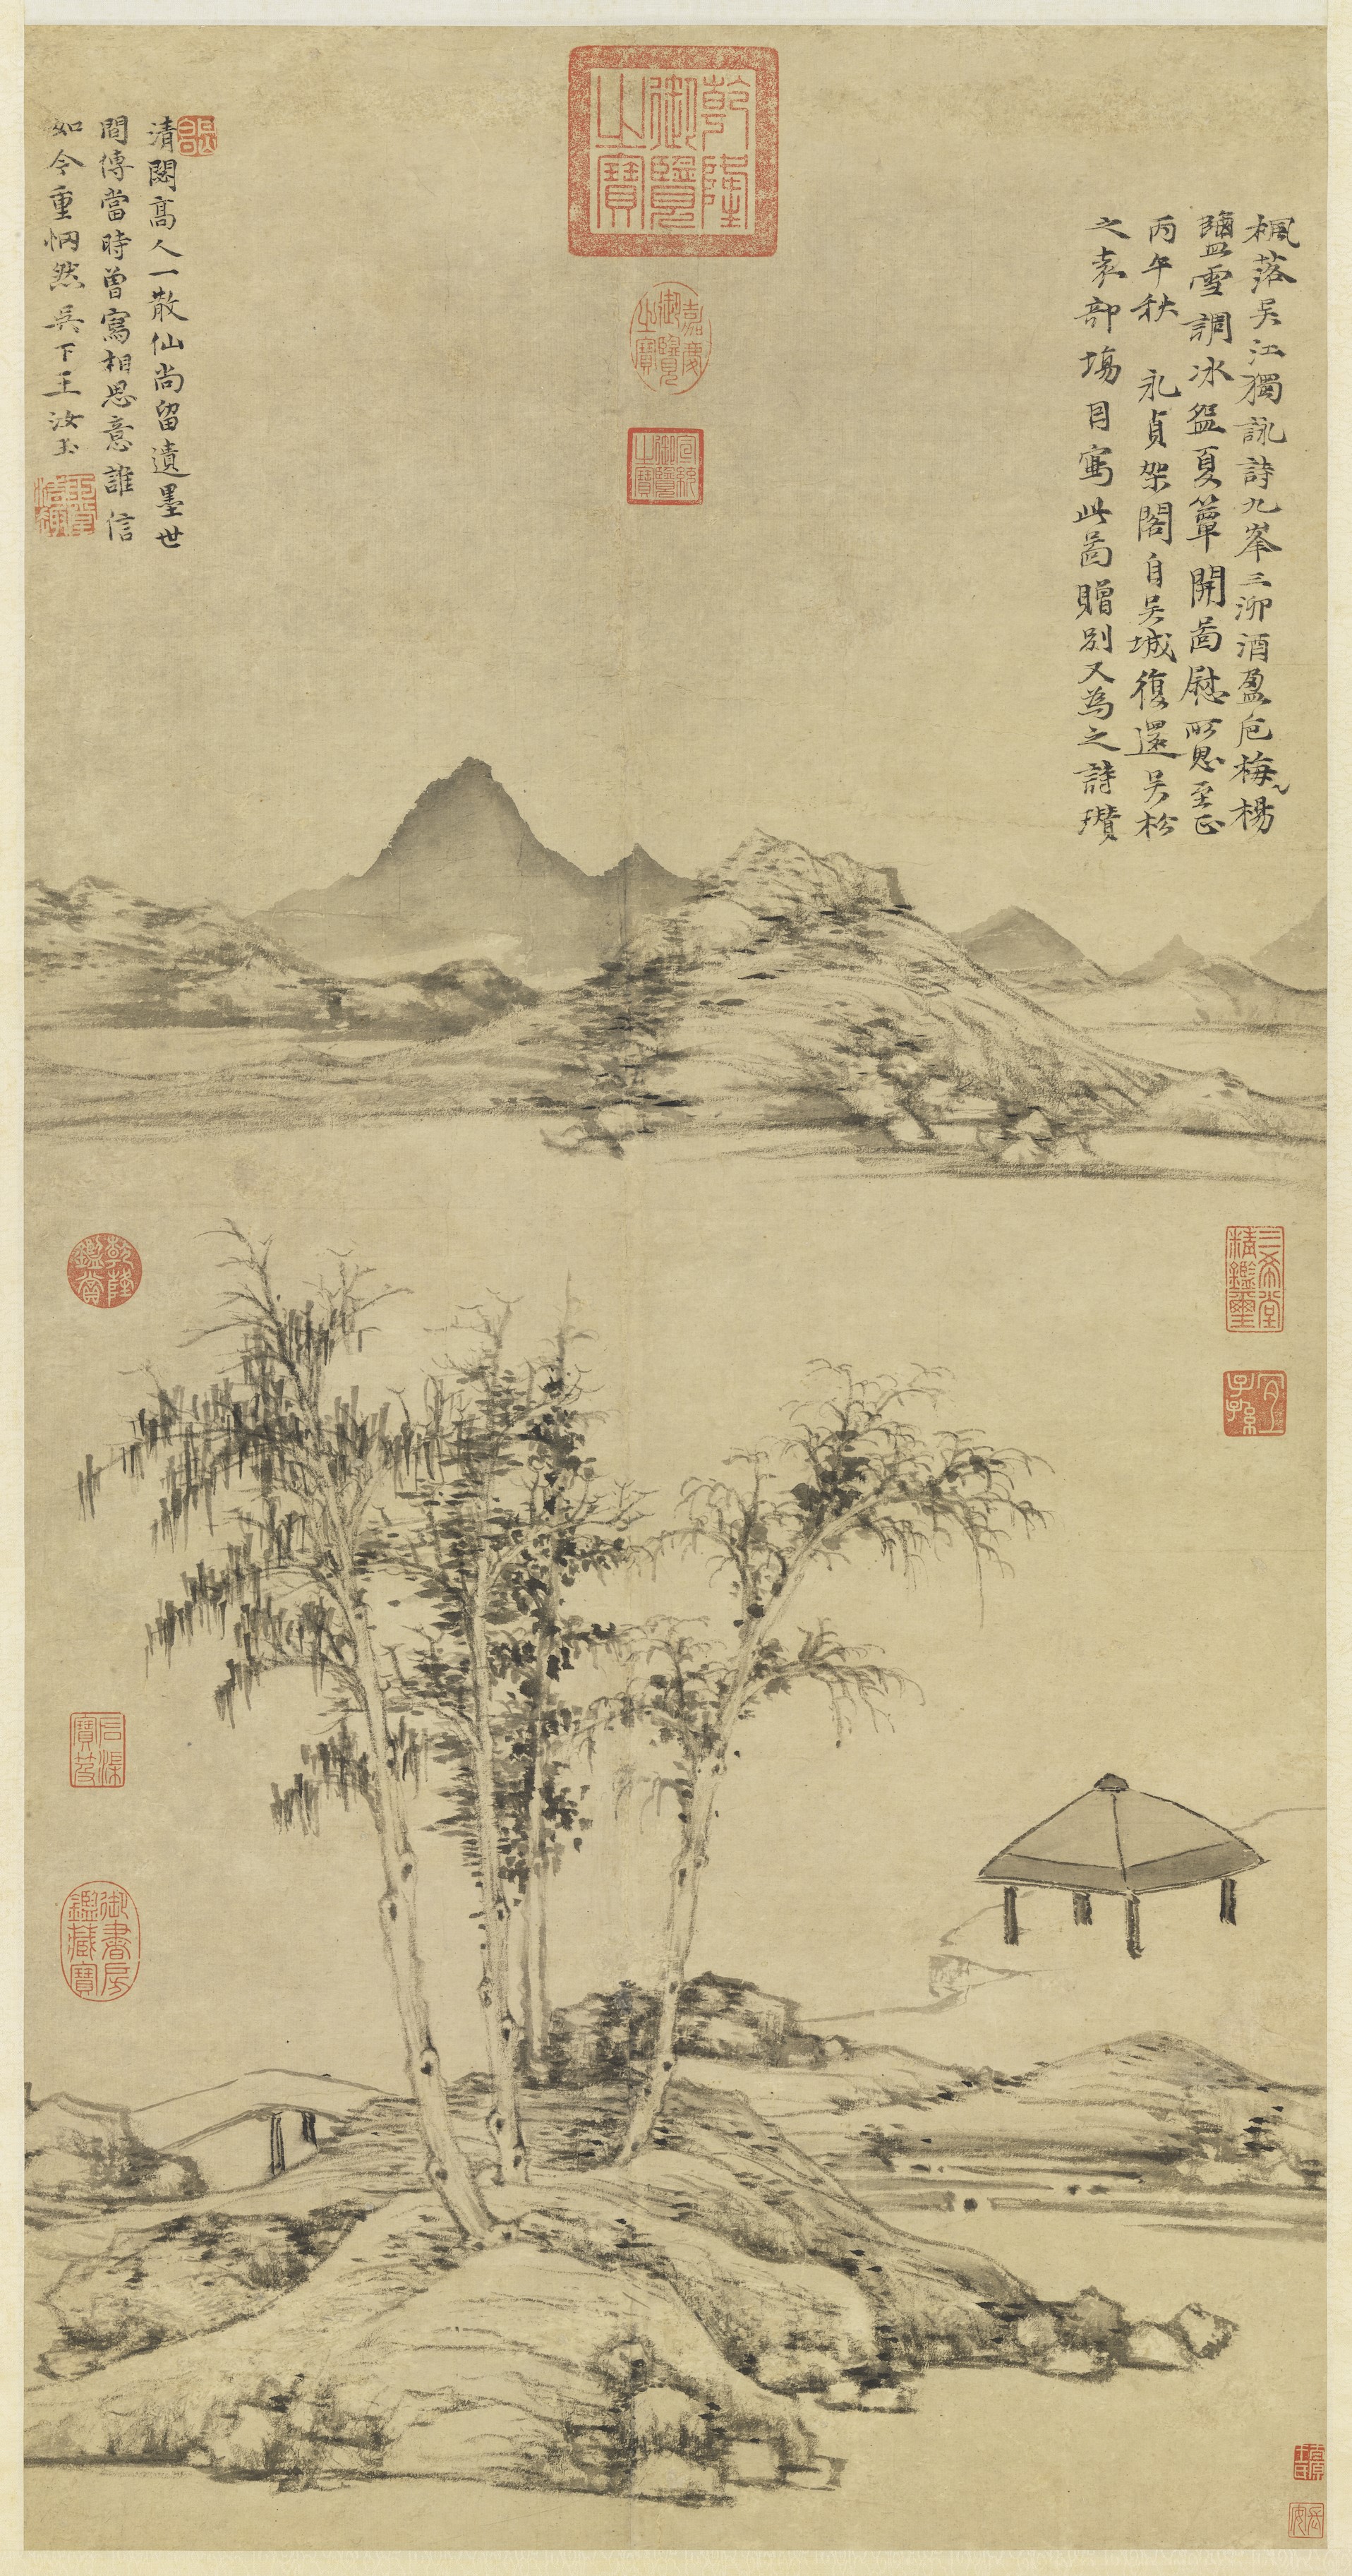 楓落吳江獨詠詩九峯三泖酒盈巵梅楊
鹽雪調冰盌夏簟開啚慰所思至正
丙午秋 永貞架閣自吳城復還吳松
之袁部塲目寫此啚贈別又為之詩瓚
清閟髙人一散仙尚留遺墨世
間傳當時曾寫相思意誰信
如今重惘然吳下王汝玉
乾隆御覽之寶
嘉慶御覽之寶
宣統御覽之寶
乾隆鑑賞
三希堂精鑑璽
宜子孫
石渠寶笈
御書房鑑藏寶